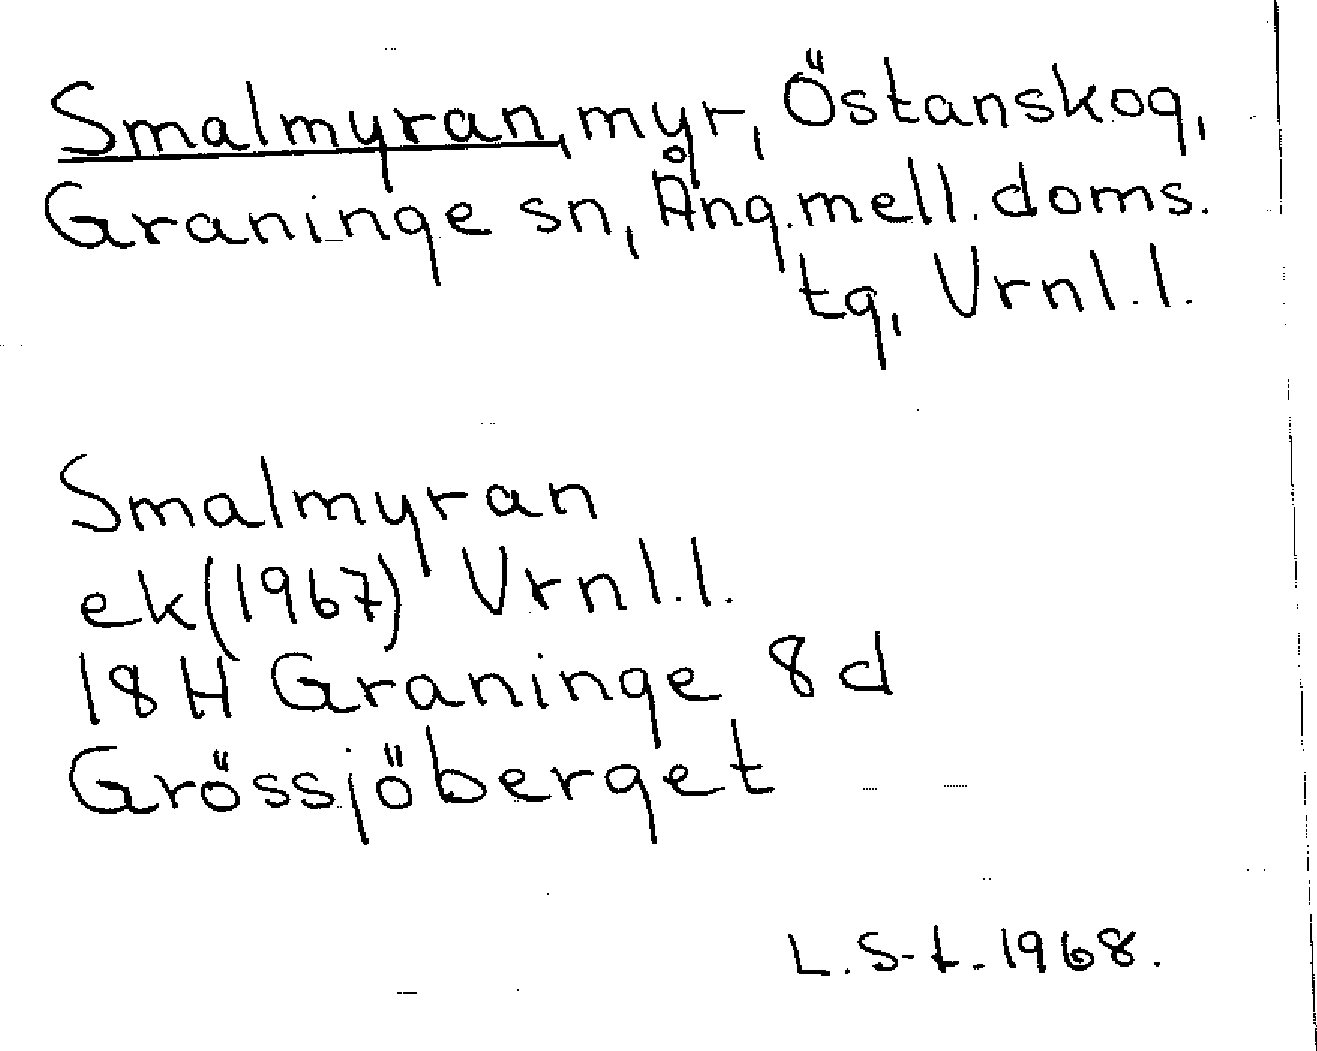 Smalmyran, myr, Östanskog,
Graninge sn, Ång.mell.doms.
tg, Vrnl.l.
Smalmyran
ek(1967) Vrnl.l.
18H Graninge 8d
Grössjöberget
L.S-t. 1968.